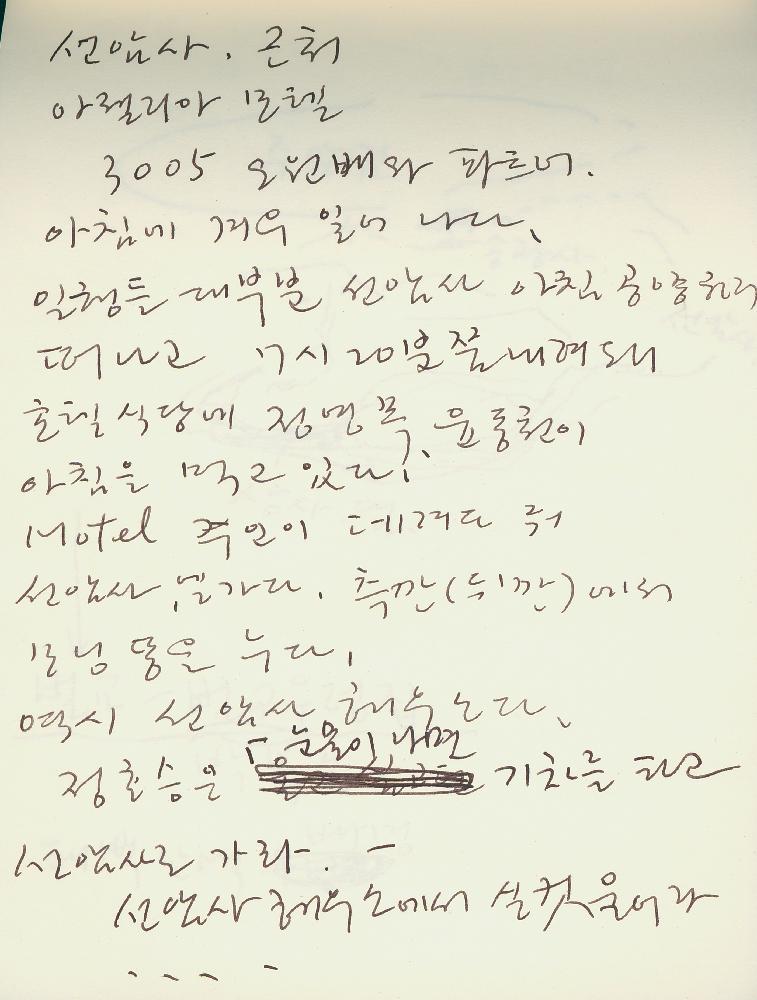 선암사. 근처
아젤리아 모텔
3005 오원배와 파트너.
아침에 겨우 일어 나다.
일행들 대부분 선암사 아침 공양하러
떠나고 7시 20분쯤 내려오니
호텔 식당에 정명목, 윤동천이
아침을 먹고 있다.
Motel 주인이 데려다 줘
선암사 가다. 측깐(뒤깐)에서
모닝 똥을 누다.
역시 선암사 해우소다.
눈물이 나면
정호승은 기차를 타고
선암사로 가라. -
선암사 해우소에서 실컷 울어라
....